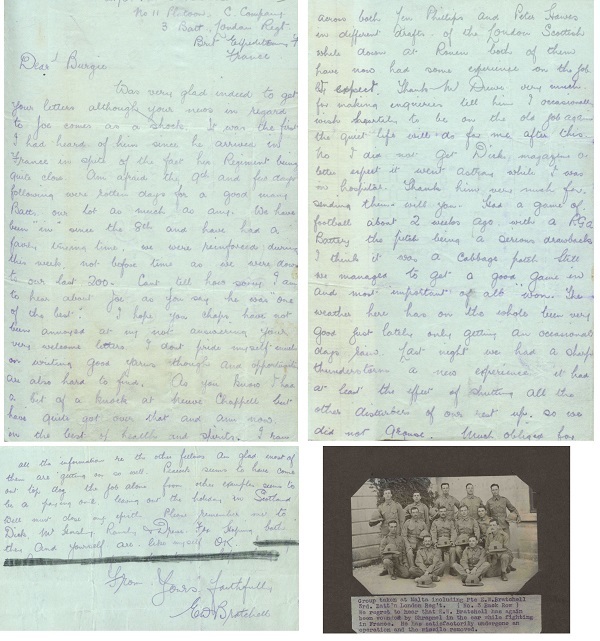 No 11 Platoon, C. Company
3 Batt. London Regt.
Brit Expeditionary F
France
Dear Burgie
Was very glad indeed to get
your letters although your news in regard
to Joe comes as a shock. It was the first
I had heard of him since he arrived in
France in spite of the fact his Regiment being
quite close. Am afraid the 9th and few days
following were rotten days for a good many
Batts, our lot as much as any. We have
been "in" since the 8th and have had a
fairly trying time. we were reinforced during
this week, not before time as we were down
to our last 200. Cant tell how sorry I am
to hear about Joe as you say he was one
of the best. I hope you chaps have not
been annoyed at my not answering your
very welcome letters. I dont pride myself much
on writing good yarns though and opportunities
are also hard to find. As you know I had
a bit of a knock at Neuve Chappell but
have quite got over that and am now
in the best of health and spirits. I ran
across both Jim Phillips and Peter Hawes
in different drafts of the London Scottish
while down at Rouen both of them
have now had some experience on the job
I expect. Thank Mr Drew very much
for making inquiries tell him I occasionally
wish heartily to be on the old job again
the quiet life will do for me after this.
No I did not get Dick, magazine or
letter expect it went astray while I was
in hospital. Thank him very much for
sending them will you. Had a game of
football about 2 weeks ago with a R.G.A
Battery the pitch being a serious drawback
I think it was a cabbage patch. Still
we managed to get a good game in
and most important of all won. The
weather here has on the whole been very
good just lately only getting an occasional
days rain. Last night we had a sharp
thunderstorm a new experience it had
at least the effect of shutting all the
other disturbers of our rest up. so we
did not grouse. Much obliged for
all the information re the other fellows Am glad most of
them are getting on so well. seems to have come
out top dog the job alone from other examples seems to
be a paying one leaving out the holiday in Scotland
Well must close my epistle. Please remember me to
Dick, Mr Drew Hoping both
they and yourself are like myself OK.
From Yours Faithfully
E W Bratchell
Group taken at Malta including Pte E.W.Bratchell
3rd. Batt'n London Reg't. ( No. 3 Back Row )
We regret to hear that E.W. Bratchell has again
been wounded by Shrapnel in the ear while fighting
in France. He has satisfactorily undergone an
operation and the missile removed.